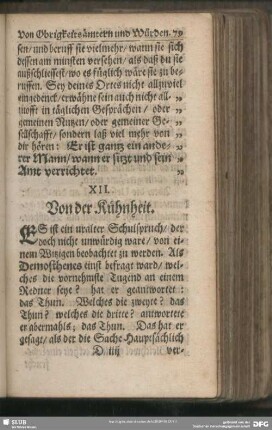 Von Obrigkeitsämtern und Würden. 79
sen/ und beruff sie vielmehr/ wann sie sich
dessen am minsten versehen/ als daß du sie
außschliessest/ wo es füglich wäre sie zu be-
ruffen. Sey deines Ortes nicht allzuviel
eingedenck/ erwähne sein auch nicht all-
iuofft in täglichen Gesprächen/ oder
gemeinen Nutzen/ oder gemeiner Ge-
sellschafft/ sondern laß viel mehr von
dir hören: Er ist gantz ein ande-
rer Mann/ wann er sitzt und sein
Amt verrichtet.
XII.
Von der Kühnheit.
ES ist ein uralter Schulspruch/ der
doch nicht unwürdig ware/ von ei-
nem Witzigen beobachtet zu werden. Als
Demosthenes einst befragt ward/ wel-
ches die vornehmste Tugend an einem
Redner seye? hat er geantwortet:
das Thun. Welches die zweyte? das
Thun? welches die dritte? antwortete
er abermahls; das Thun. Das hat er
gesagt/ als der die Sache Hauptsächlich
D iiij ver-
SLUB